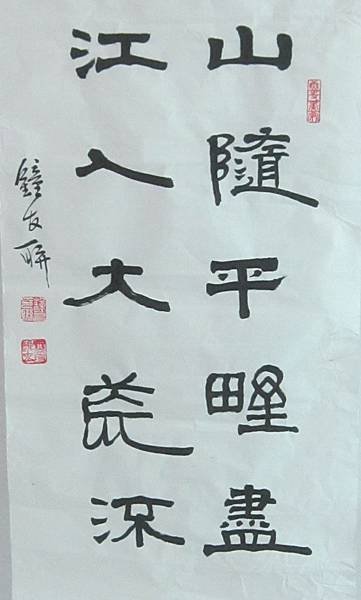 山隨平野盡
江入大荒流
鐘友聯